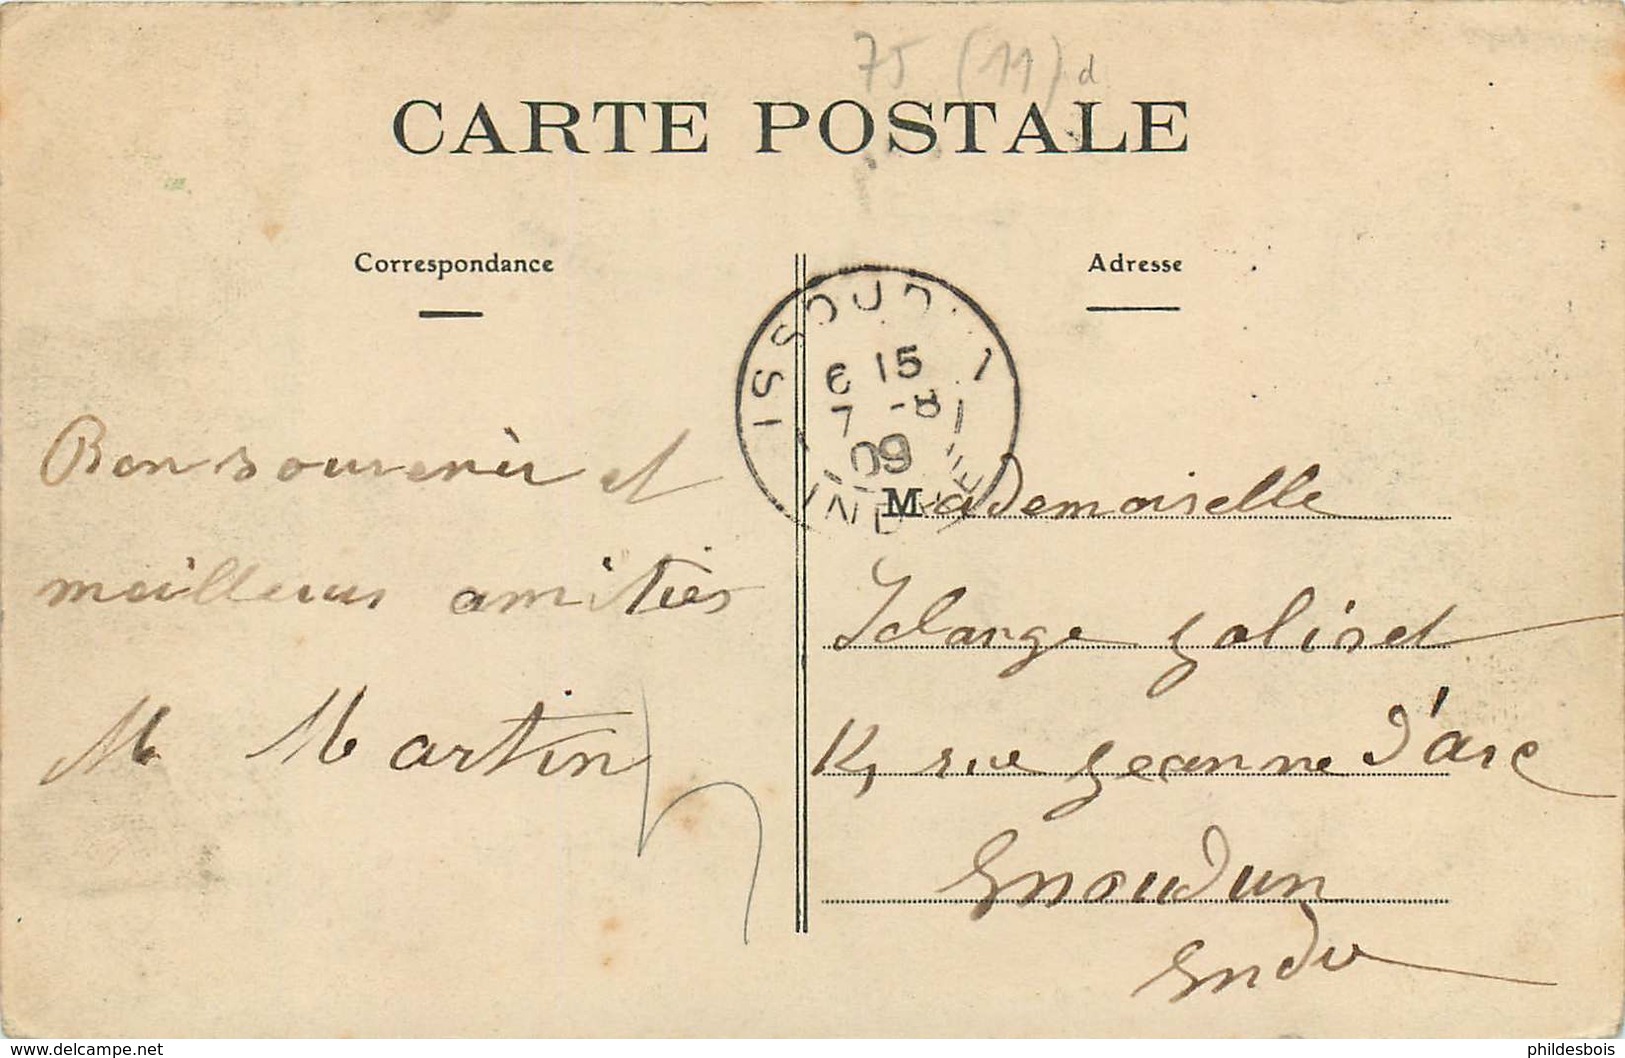 75 (11) d
CARTE POSTALE
Correspondance
Adresse
ISSOUDUN
6 15
7 - 8
09
INDRE
Bon souvenir et
meilleurs amitiés
M Martin
Mademoiselle
Solange Goliset
14, rue Jeanne d'arc
Issoudun
Indre
www.delcampe.net
phildesbois